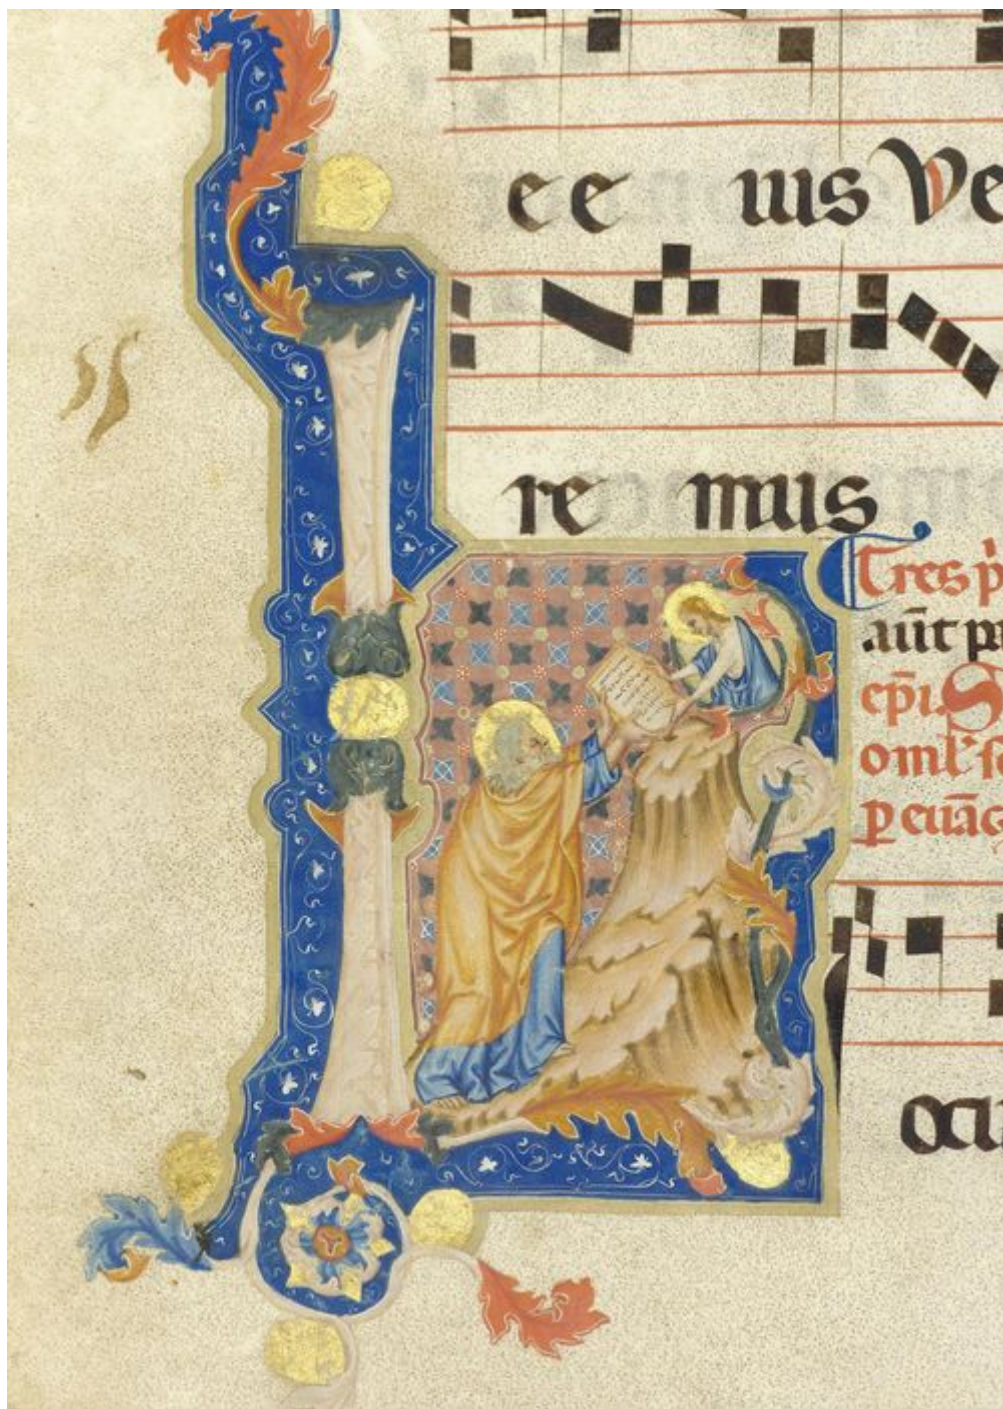 ee uus Ve
re mus
Tres p̄
aūt pa
ep̄i. S
oml̄' sc
p euāg
ocu